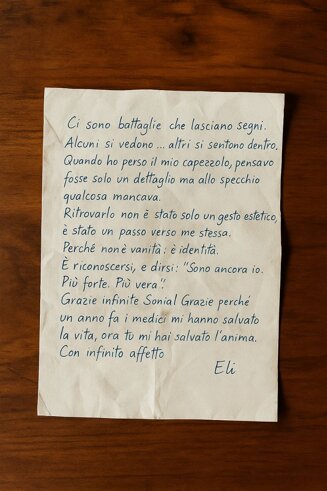 Ci sono battaglie che lasciano segni.
Alcuni si vedono ... altri si sentono dentro.
Quando ho perso il mio capezzolo, pensavo
fosse solo un dettaglio ma allo specchio
qualcosa mancava.
Ritrovarlo non è stato solo un gesto estetico,
è stato un passo verso me stessa.
Perché non è vanità: è identità.
È riconoscersi, e dirsi: "Sono ancora io.
Più forte. Più vera".
Grazie infinite Sonia! Grazie perché
un anno fa i medici mi hanno salvato
la vita, ora tu mi hai salvato l'anima.
Con infinito affetto
Eli